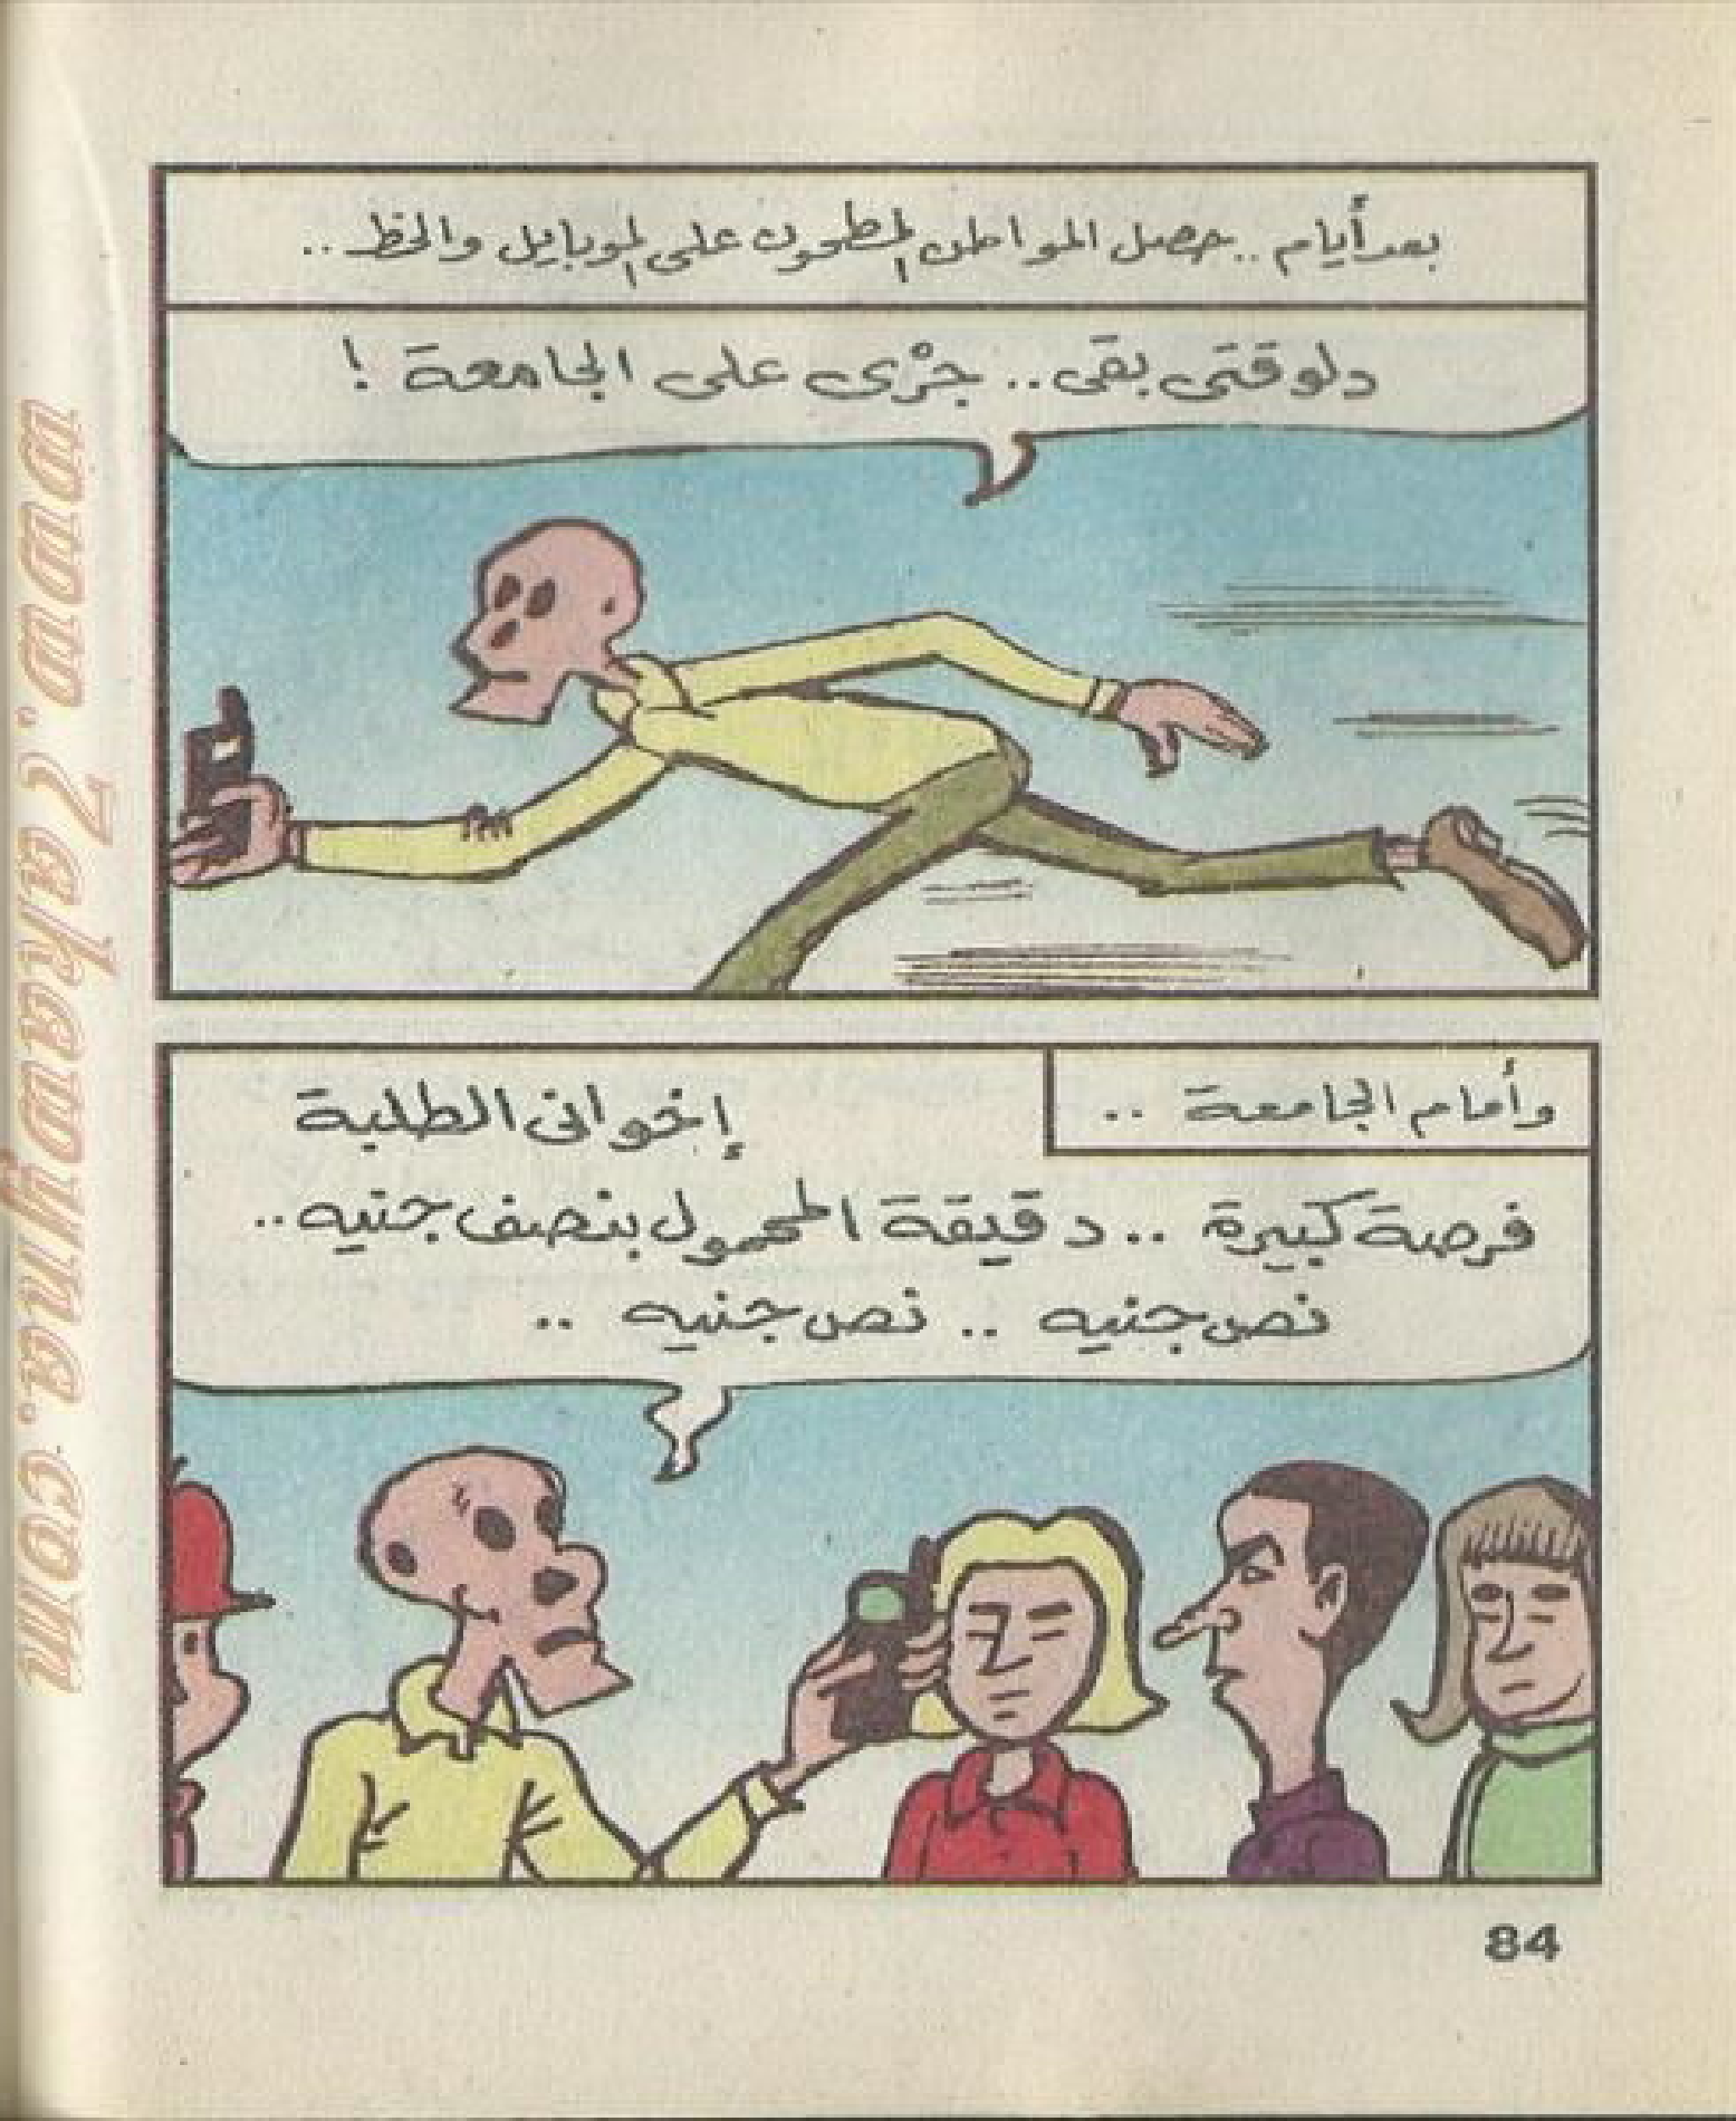 بعد أيام .. حصل المواطن المطحون على الموبايل والخط ..
دلوقتى بقى .. جرْى على الجامعة !
وأمام الجامعة ..
إخوانى الطلبة
فرصة كبيرة .. دقيقة المحمول بنصف جنيه ..
نص جنيه .. نص جنيه ..
84
www.7akawyna.com